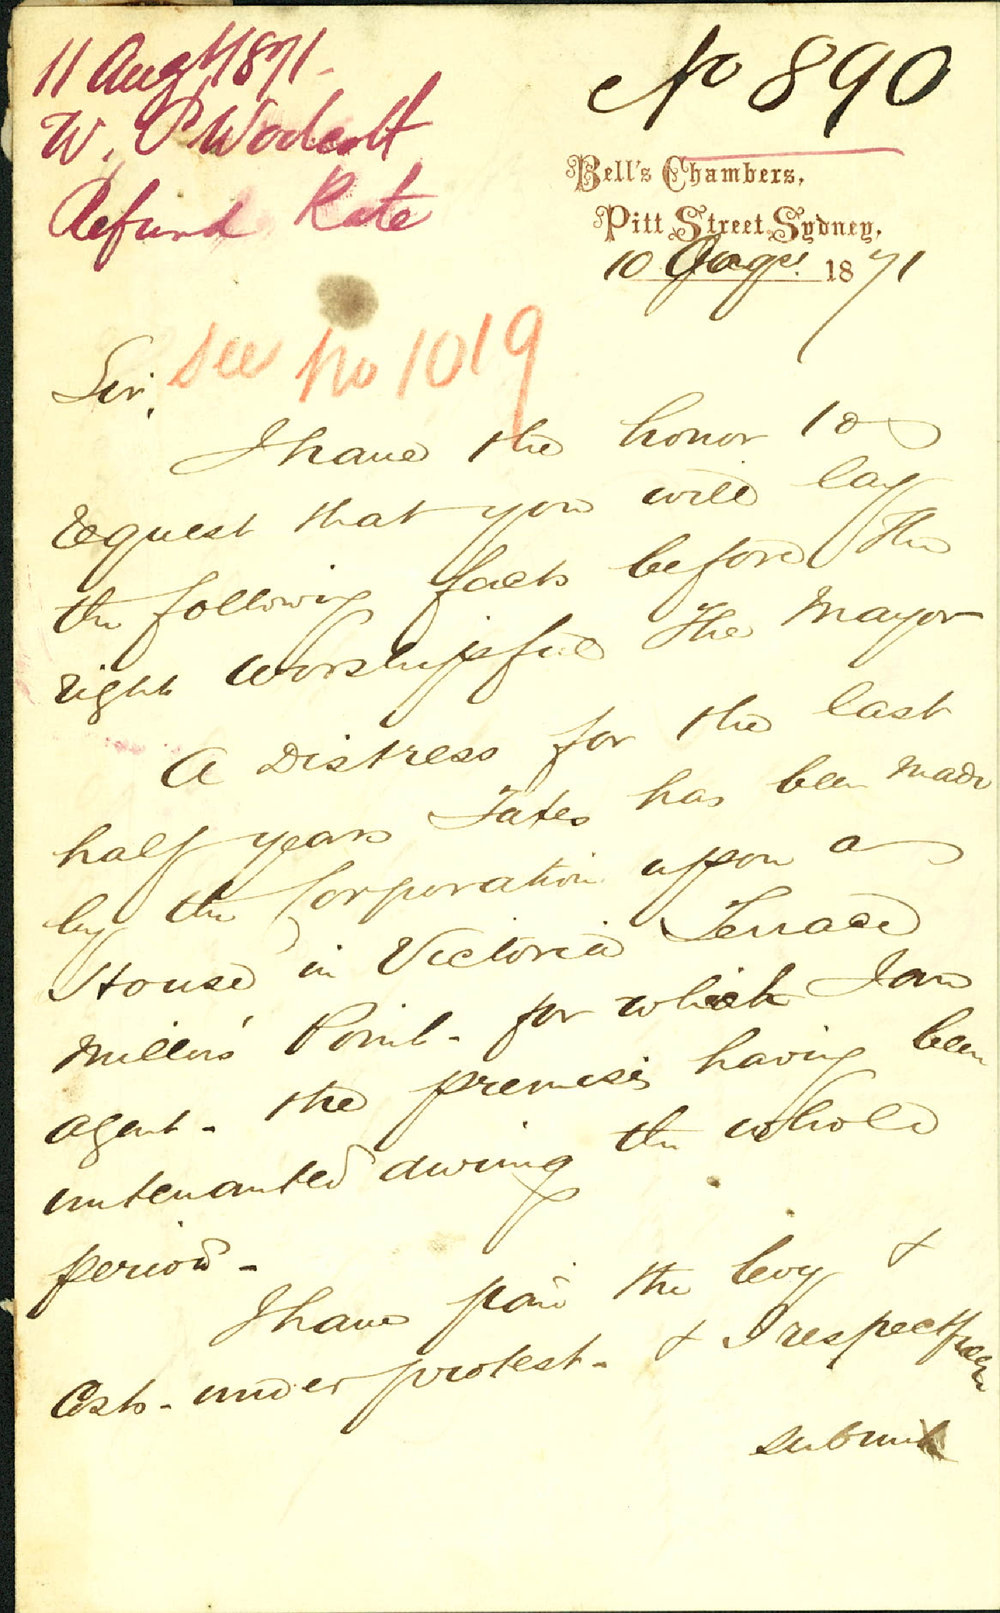 11 Augt 1871.
W. P Wolcott
Refund Rate
No 890
Bell's Chambers,
Pitt Street Sydney.
10 Augt 1871
See no 1019
Sir,
I have the honor to
request that you will lay
the following facts before the
right worshipful The Mayor
A Distress for the last
half years Rates has been made
by the Corporation upon a
House in Victoria Terrace
Millers' Point - for which I am
agent - the premises having been
untenanted during the whole
period -
I have paid the levy &
Costs - under protest - & I respectfully
submit